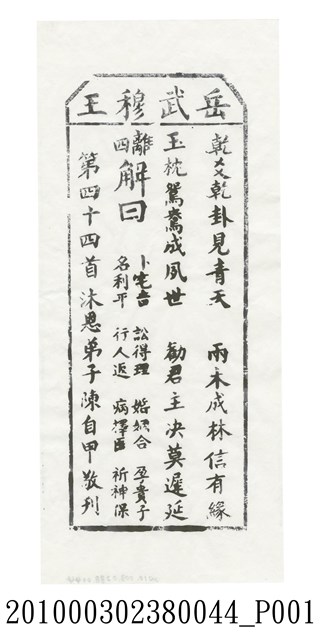 岳武穆王
乾爻乾卦見青天 兩木成林信有緣
玉枕鴛鴦成夙世 勸君主决莫遲延
離四
解曰
卜宅吉 訟得理 婚姻合 孕貴子
名利平 行人返 病擇醫 祈神保
第四十四首 沐恩弟子陳自甲敬刊
201000302380044_P001